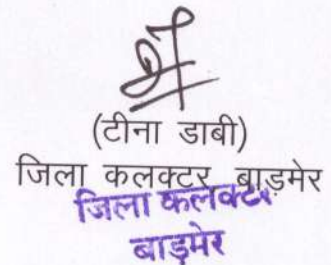 (टीना डाबी)
जिला कलक्टर बाड़मेर
जिला कलक्टर
बाड़मेर